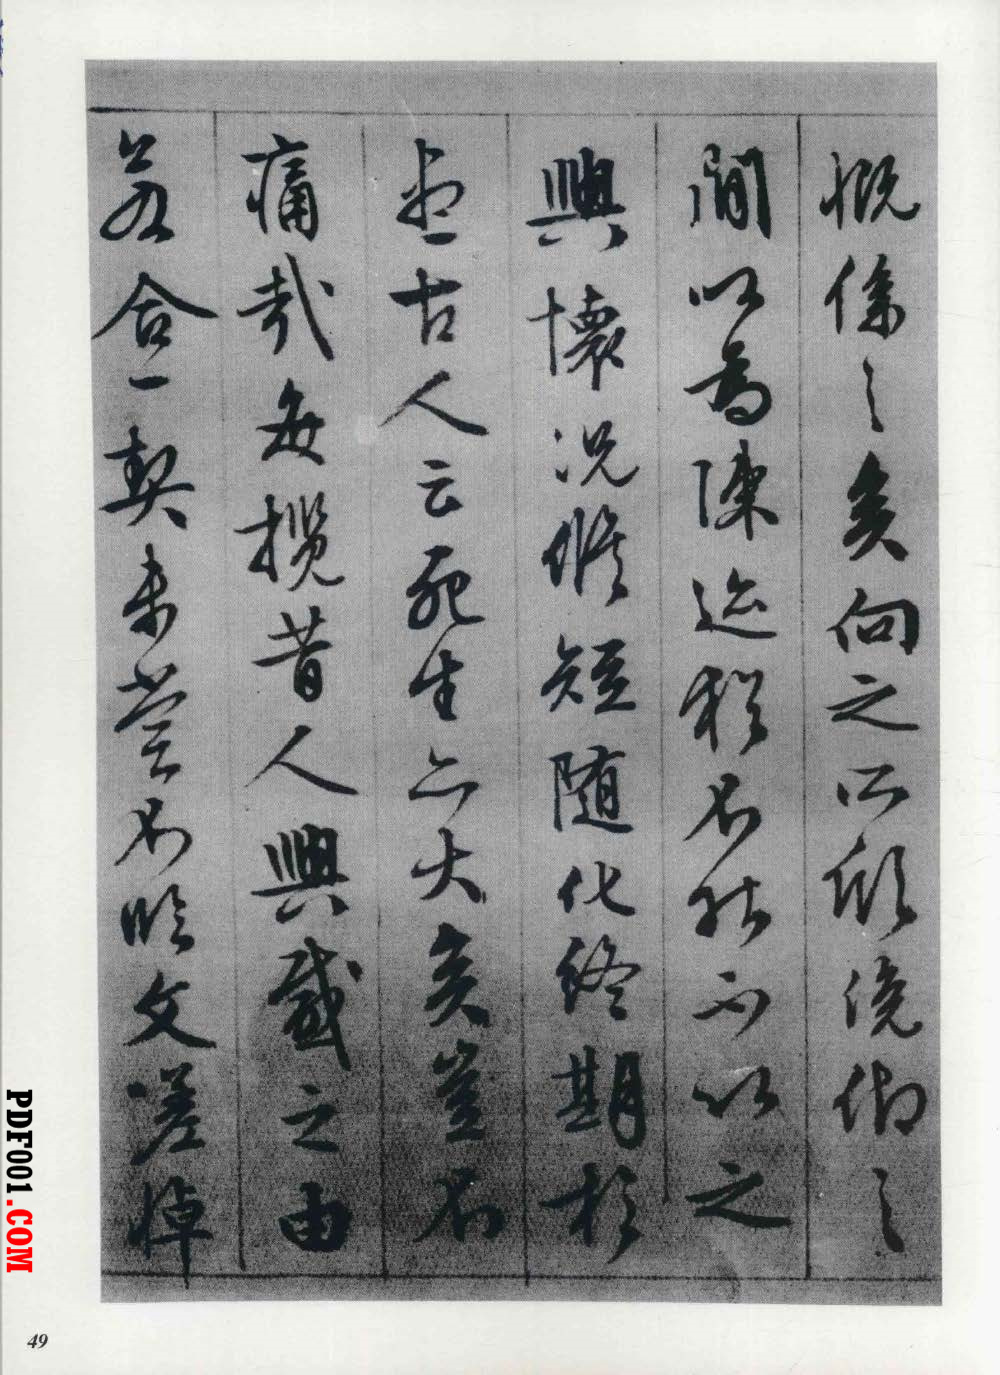 慨係之矣向之所欣俛仰之
閒以為陳迹猶不能不以之
興懷況脩短隨化終期於
盡古人云死生亦大矣豈不
痛哉每攬昔人興感之由
若合一契未嘗不臨文嗟悼
PDF001.COM
49